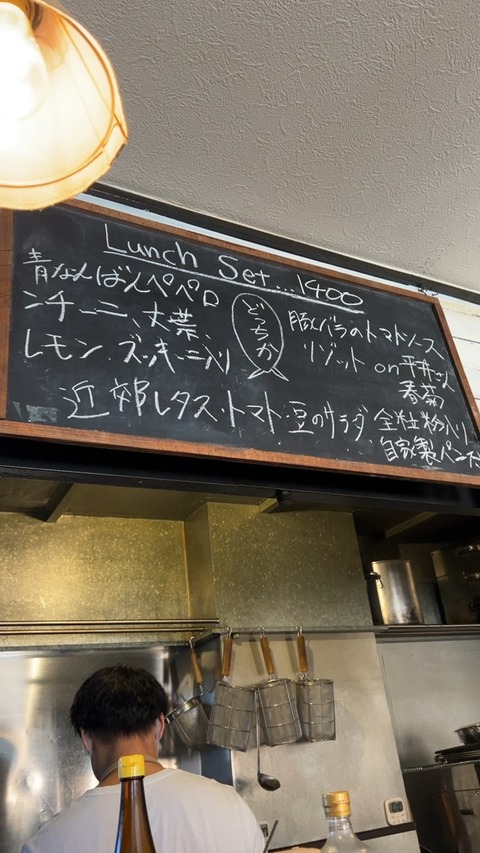 Lunch Set...1400
青なんばんペペロ
ンチーニ、大葉
レモン、ズッキーニ入り
どっちか
豚バラのトマトソース
リゾット on 平井さん
春菊
近郊レタス・トマト・豆のサラダ
全粒粉入り
自家製パン